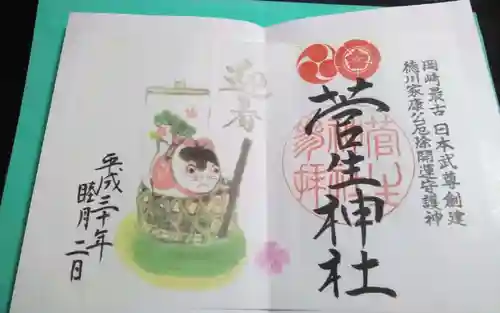 岡崎最古 日本武尊創建
徳川家康公厄除開運守護神
菅生神社
菅生神社参拝
迎春
平成三十年
睦月二日